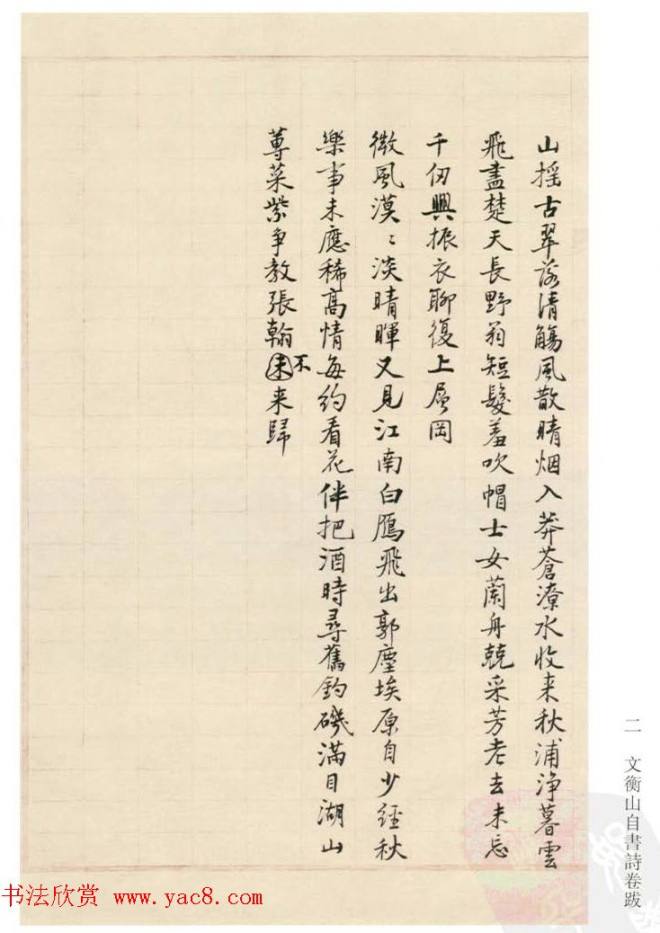 山摇古翠落清觴風散晴烟入莽蒼潦水收来秋浦浄暮雲
飛盡楚天長野翁短髮羞吹帽士女蘭舟兢采芳老去未忘
千仞興振衣聊復上層岡
微風漠〻淡晴暉又見江南白鴈飛出郭塵埃原自少經秋
樂事未應稀高情每約看花伴把酒時尋舊釣磯滿目湖山
蓴菜紫争教張翰未不来歸
二 文衡山自書詩卷跋
书法欣赏 www.yac8.com